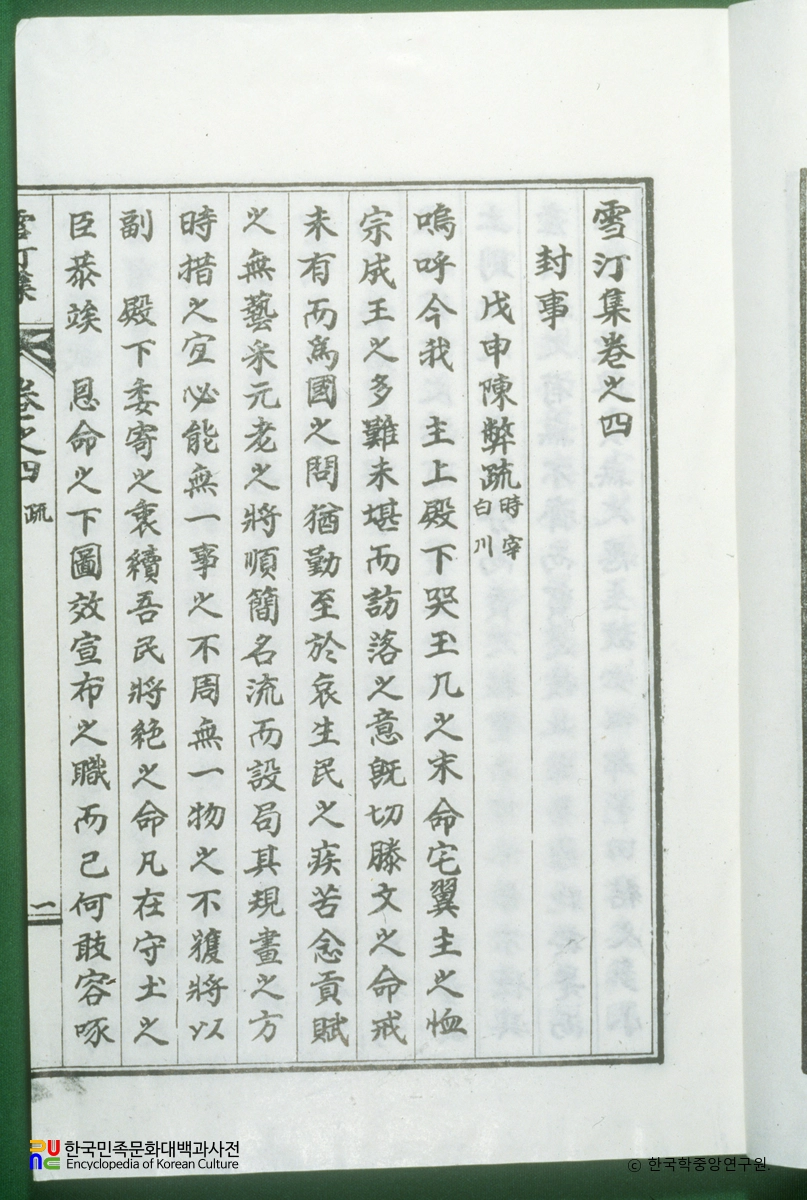 雪汀集卷之四
封事
戊申陳弊疏 時宰白川
嗚呼今我 主上殿下哭玉几之末命宅翼主之恤
宗成王之多難未堪而訪落之意旣切滕文之命戒
未有而爲國之問猶勤至於哀生民之疾苦念貢賦
之無藝采元老之將順簡名流而設局其規畫之方
時措之宜必能無一事之不周無一物之不獲將以
副 殿下委寄之衷續吾民將絶之命凡在守土之
臣恭竢 恩命之下圖效宣布之職而已何敢容啄
雪汀集 卷之四 疏 一
한국민족문화대백과사전
Encyclopedia of Korean Culture
© 한국학중앙연구원